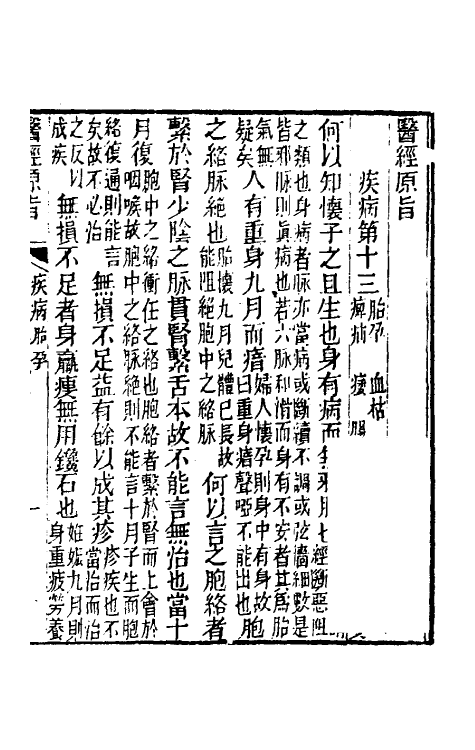 醫經原旨
疾病第十三 胎孕 血枯
何以知懷子之且生也身有病而
經斷惡阻
之類也身病者脉亦當病或斷續不調或弦濇細數是
皆邪脉則真病也若六脉和滑而身有不安者其爲胎
氣無疑矣人有重身九月而瘖婦人懷孕則身中有身故曰重身瘖聲啞不能出也胞
之絡脉絶也胎懷九月兒體已長故能阻絶胞中之絡脉何以言之胞絡者
繫於腎少陰之脉貫腎繫舌本故不能言無治也當十
月復胞中之絡衝任之絡也胞絡者繫於腎而上會於
咽喉故胞中之絡脉絶則不能言十月子生而胞
絡復通則能言矣故不必治無損不足益有餘以成其疹疹疾也不當治而治
之反以成疾無損不足者身羸瘦無用鑱石也姙娠九月則身重疲勞養
醫經原旨 疾病 胎孕 一